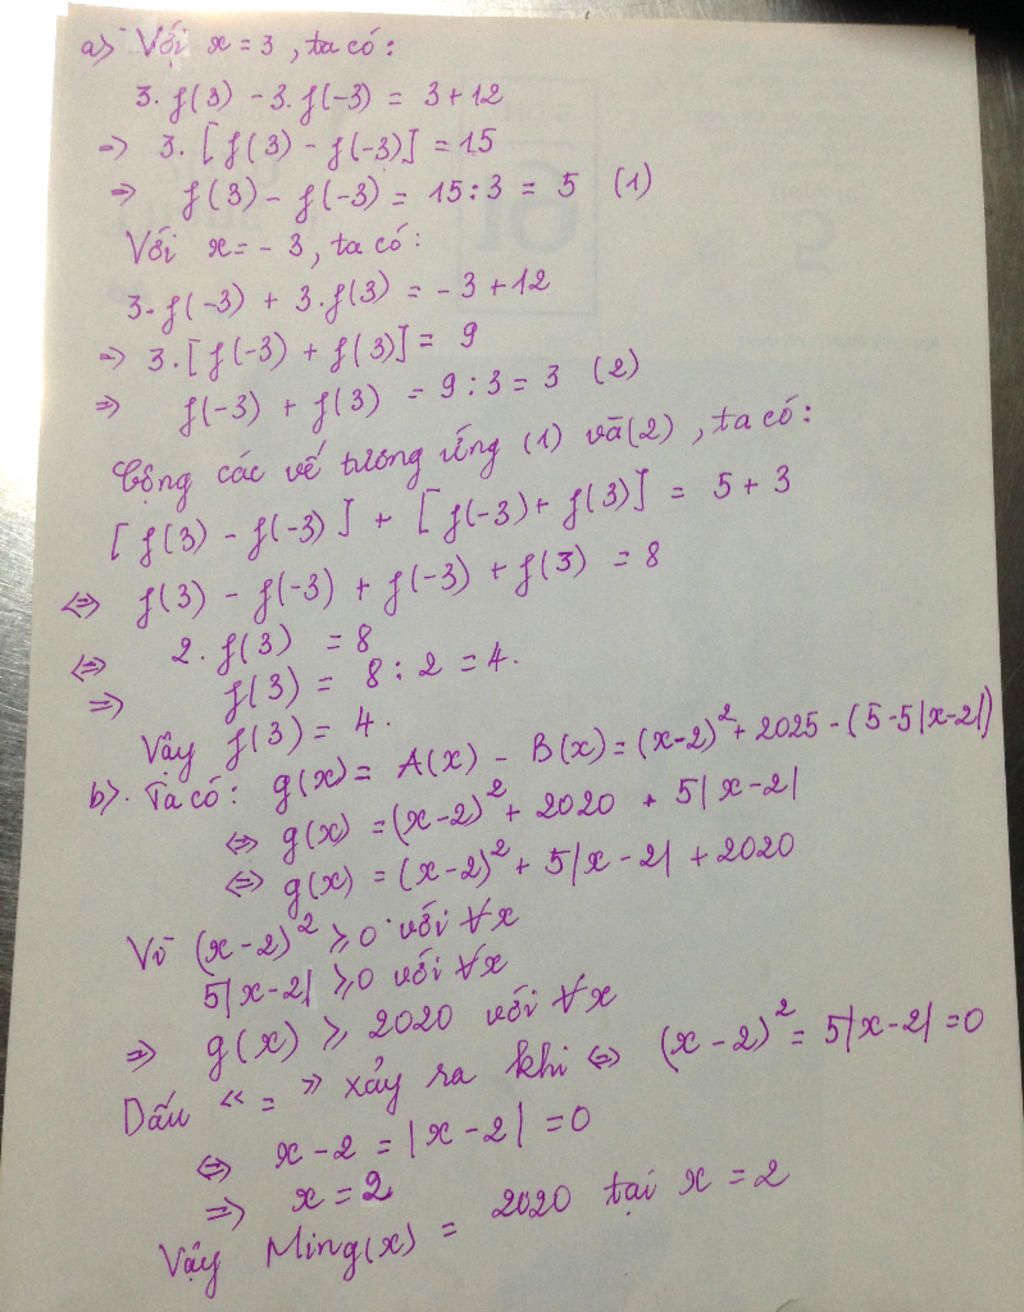 a) Với x = 3, ta có:
3.f(3) - 3.f(-3) = 3+12
⇒ 3.[f(3) - f(-3)] = 15
⇒ f(3) - f(-3) = 15:3 = 5 (1)
Với x = -3, ta có:
3.f(-3) + 3.f(3) = -3+12
⇒ 3.[f(-3) + f(3)] = 9
⇒ f(-3) + f(3) = 9:3 = 3 (2)
Cộng các vế tương ứng (1) và (2), ta có:
[f(3) - f(-3)] + [f(-3) + f(3)] = 5 + 3
⇔ f(3) - f(-3) + f(-3) + f(3) = 8
⇔ 2.f(3) = 8
⇒ f(3) = 8:2 = 4.
Vậy f(3) = 4.
b). Ta có: g(x) = A(x) - B(x) = (x-2)² + 2025 - (5-5|x-2|)
⇔ g(x) = (x-2)² + 2020 + 5|x-2|
⇔ g(x) = (x-2)² + 5|x-2| + 2020
Vì (x-2)² ≥ 0 với ∀x
5|x-2| ≥ 0 với ∀x
⇒ g(x) ≥ 2020 với ∀x
Dấu "=" xảy ra khi ⇔ (x-2)² = 5|x-2| = 0
⇔ x-2 = |x-2| = 0
⇒ x = 2
Vậy Min g(x) = 2020 tại x = 2